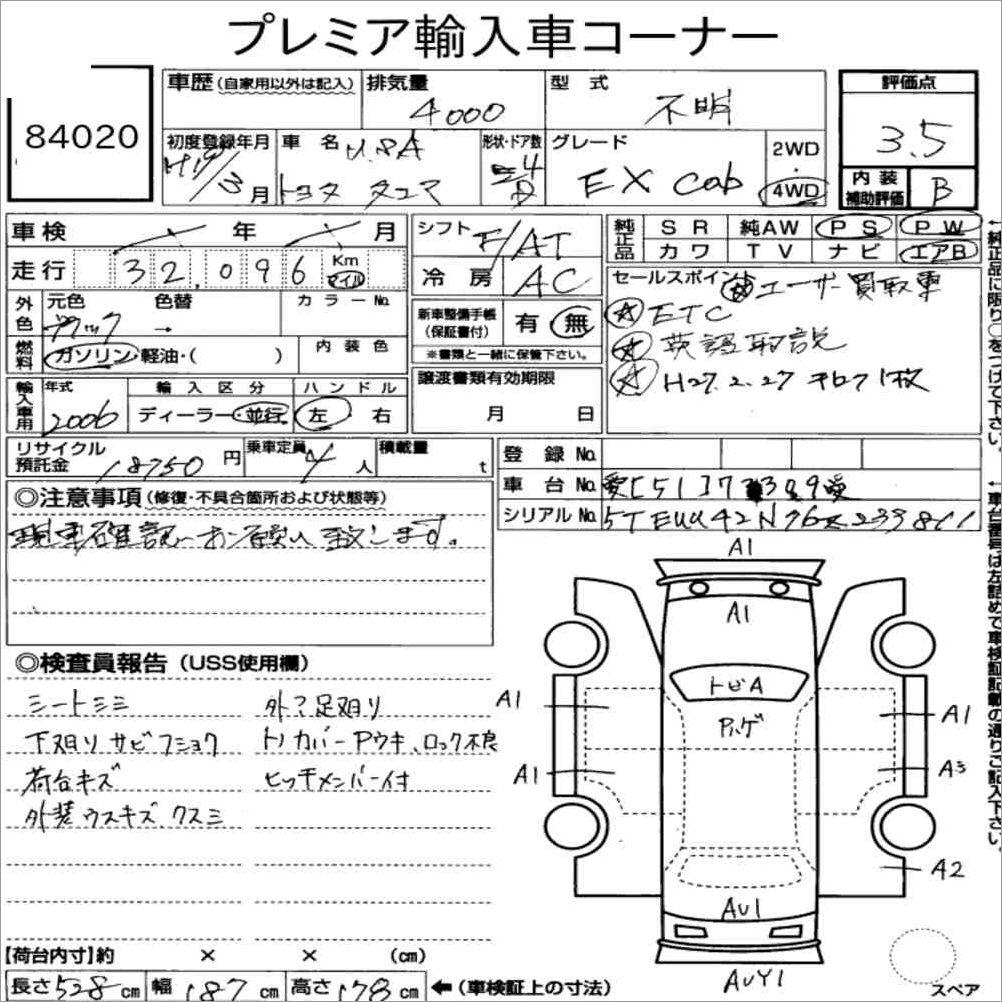 プレミア輸入車コーナー
84020
車歴（自家用以外は記入）
排気量
4000
型式
不明
評価点
3.5
初度登録年月
H18/
月
車名
U.S.A
トヨタ タコマ
形状・ドア数
4
D
グレード
EX cab
2WD
4WD
内装
補助評価
B
車検 年 月
走行 32,096 Km マイル
シフト F/AT
冷房 AC
純正品
SR 純AW PS PW
カワ TV ナビ エアB
外色
元色 色替 カラーNo.
ブラック →
燃料
ガソリン・軽油・( )
内装色
新車整備手帳
(保証書付)
有 無
※書類と一緒に保管下さい。
セールスポイント
ユーザー買取車
ETC
英語取説
H27.2.27
1枚
輸入車用
年式 輸入区分 ハンドル
2006 ディーラー・並行 左 右
譲渡書類有効期限
月 日
リサイクル
預託金
18750円
乗車定員 4人
積載量 t
登録No.
車台No.
シリアルNo.
◎注意事項（修復・不具合箇所および状態等）
現車確認お願い致します。
◎検査員報告（USS使用欄）
シートシミ
下廻りサビフショク
荷台キズ
外装ウスキズ、クスミ
外マ足廻り
カバーウキ、ロック不良
ヒッチメンバー付
A1
A1
トビA
A1
A1
A1
A3
A2
AU1
AUY1
スペア
【荷台内寸】約 × × (cm)
長さ528cm 幅187cm 高さ178cm ←（車検証上の寸法）
↑純正品に限り○をつけて下さい。
↑車台番号は左詰めで車検証記載の通りご記入下さい。